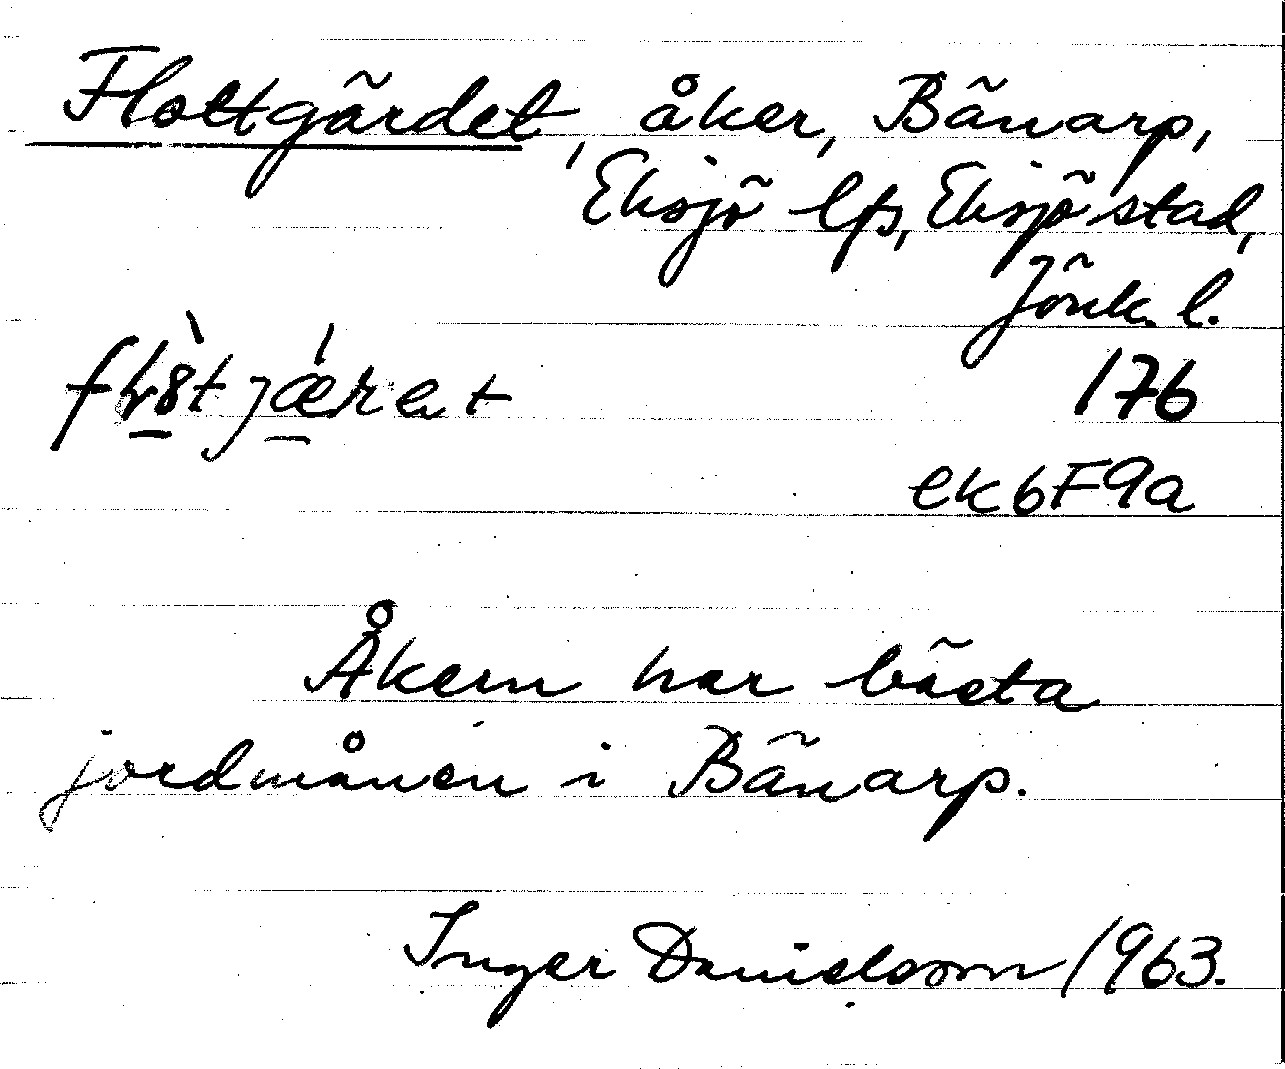 Flottgärdet, åker, Bänarp,
Eksjö lfs, Eksjö stad,
Jönk. l.
176
ek 6F9a
Åkern har bästa
jordmånen i Bänarp.
Inger Danielsson 1963.